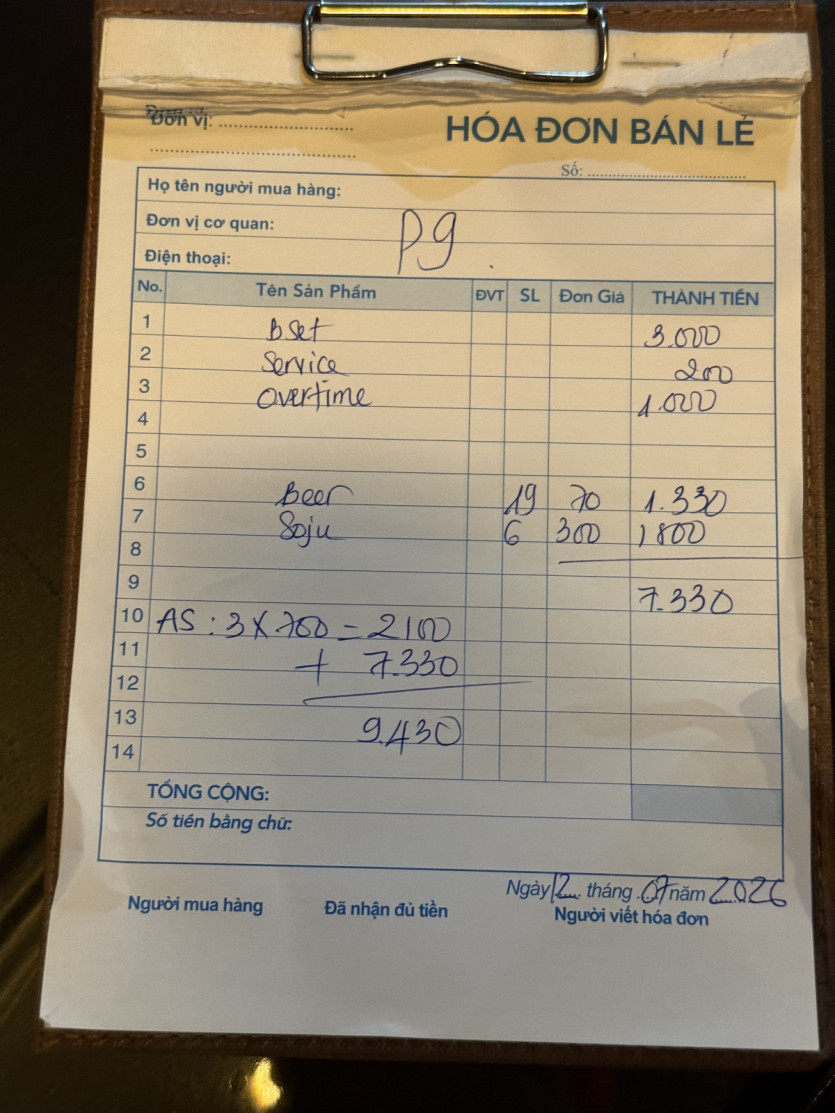 Đơn vị:
HÓA ĐƠN BÁN LẺ
Số:
Họ tên người mua hàng:
Đơn vị cơ quan:
P9
Điện thoại:
No. Tên Sản Phẩm ĐVT SL Đơn Giá THÀNH TIỀN
1 B set 3.000
2 Service 200
3 Overtime 1.000
4
5
6 Beer 19 70 1.330
7 Soju 6 300 1800
8
9 7.330
10 AS : 3 x 700 = 2100
11 + 7.330
12
13 9.430
14
TỔNG CỘNG:
Số tiền bằng chữ:
Ngày 12 tháng 07 năm 2026
Người mua hàng Đã nhận đủ tiền Người viết hóa đơn